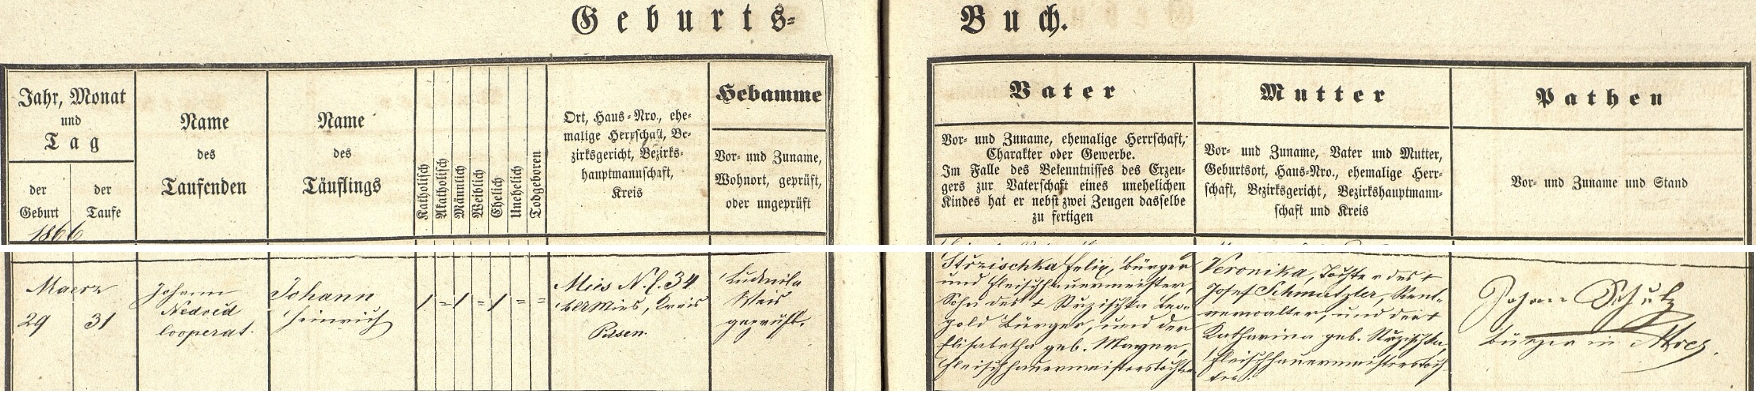 Geburts-
Buch.
Jahr, Monat
und
Tag
der
Geburt
der
Taufe
1866
Name
des
Taufenden
Name
des
Täuflings
Katholisch
Akatholisch
Männlich
Weiblich
Ehelich
Unehelich
Todgeboren
Ort, Haus-Nro., ehe-
malige Herrschaft, Be-
zirksgericht, Bezirks-
hauptmannschaft,
Kreis
Hebamme
Vor- und Zuname,
Wohnort, geprüft,
oder ungeprüft
Vater
Vor- und Zuname, ehemalige Herrschaft,
Charakter oder Gewerbe.
Im Falle des Bekenntnisses des Erzeu-
gers zur Vaterschaft eines unehelichen
Kindes hat er nebst zwei Zeugen dasselbe
zu fertigen
Mutter
Vor- und Zuname, Vater und Mutter,
Geburtsort, Haus-Nro., ehemalige Herr-
schaft, Bezirksgericht, Bezirkshauptmann-
schaft und Kreis
Pathen
Vor- und Zuname und Stand
Maerz
29 31
Johann
Nedvěd
Cooperat.
Johann
Heinrich
1 = 1 = 1 = =
Mies N. C. 34
Mies, Kreis
Pilsen.
Ludmila
Weis
geprüft.
Strzischka Felix, Bürger
und Fleischhauermeister,
Sohn des † Leo-
pold Bürger, und der
Elisabetha geb. Mayer,
Fleischhauermeisterstochter
Veronika, Tochter des †
Josef Schmutzler, Rent-
verwalter, und der †
Katharina geb.
Fleischhauermeisterstoch-
ter.
Johann Schulz
Bürger in Mies.